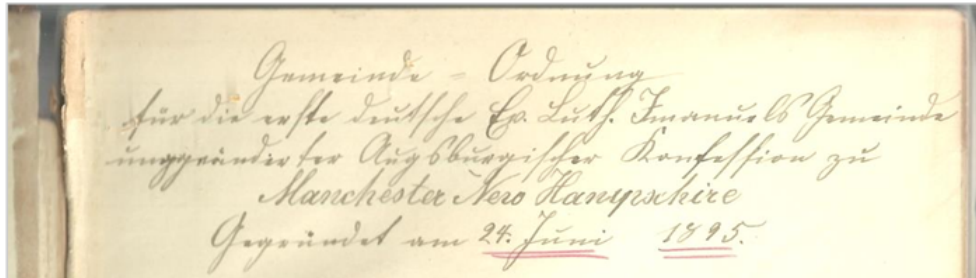 Gemeinde = Ordnung
für die erste deutsche Ev. Luth. Imanuels Gemeinde
unggeänderter Augsburgischer Konfession zu
Manchester New Hampschire
Gegründet am 24. Juni 1895.